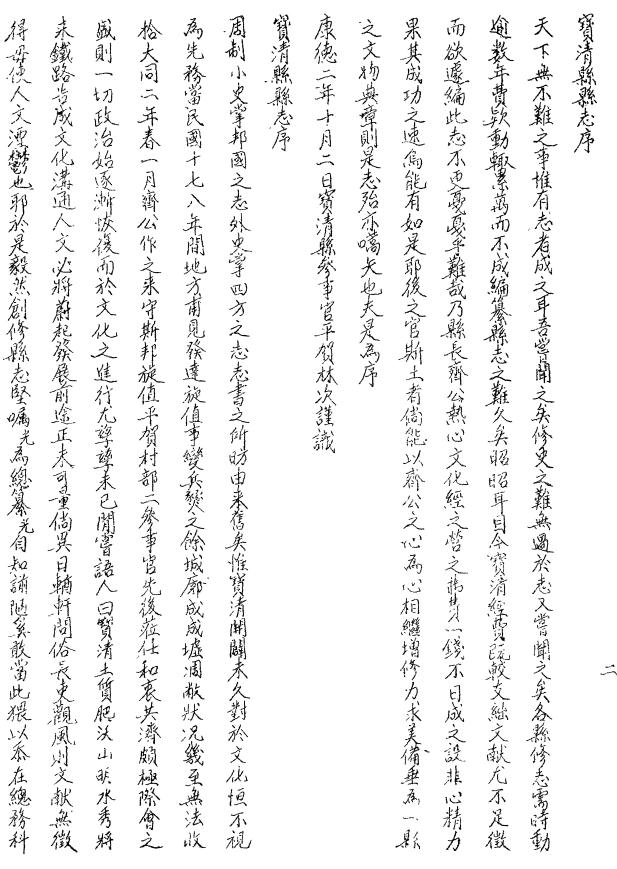 寶清縣縣志序
天下無不難之事惟有志者成之耳吾嘗聞之矣修史之難無過於志又嘗聞之矣各縣修志需時動
逾數年費款動輒累萬而不成編纂縣志之難久矣昭昭耳目今寶清經費既較支絀文献尤不足徵
而欲遽編此志不更戞戞乎難哉乃縣長齊公熱心文化經之營之弗費一錢不日成之設非心精力
果其成功之速焉能有如是耶後之官斯土者倘能以齊公之心為心相繼增修力求美備垂為一縣
之文物典章則是志殆亦嚆矢也夫是為序
康德二年十月二日寶清縣參事官平賀林次謹識
寶清縣縣志序
周制小史掌邦國之志外史掌四方之志志書之所昉由来舊矣惟寶清開闢未久對於文化恒不視
為先務當民國十七八年間地方甫見發達旋值事變兵燹之餘城廓成墟凋敝狀况幾至無法收
拾大同二年春一月齊公作之来守斯邦旋值平賀村部二參事官先後蒞仕和衷共濟頗極際會之
盛則一切政治始逐漸恢復而於文化之進行尤孳孳未已閒嘗語人曰寶清土質肥沃山明水秀將
来鐵路告成文化溝通人文必將蔚起發展前途正未可量倘異日輶軒問俗長吏觀風則文献無徵
得毋使人文湮鬱也耶於是毅然創修縣志堅囑光為總纂光自知謭陋奚敢當此猥以忝在總務科
二